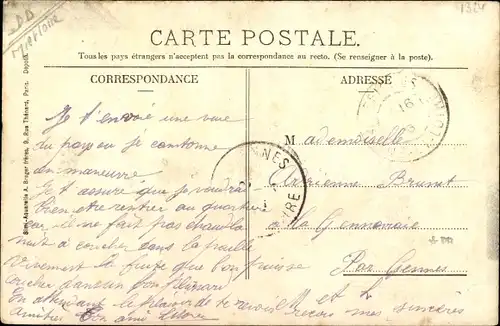 1324
CARTE POSTALE.
Tous les pays étrangers n'acceptent pas la correspondance au recto. (Se renseigner à la poste).
CORRESPONDANCE
ADRESSÉ
Je t'envoie une vue
du pays ou je cantonne
en manœuvre
Je t'assure que je voudrais
bien etre rentrer au quartier
car il ne fait pas chaud la
nuit à coucher dans la paille
Vivement la fuite que l'on puisse
coucher dans un bon
en attendant le plaisir de te revoir
amitiés Ton ami
Mademoiselle
Brunet
à la Gennevraie
Par Gennes
M et
reçois mes sincères
ENNES
16
A. Breger frères, 9, Rue Thénard, Paris. Déposé